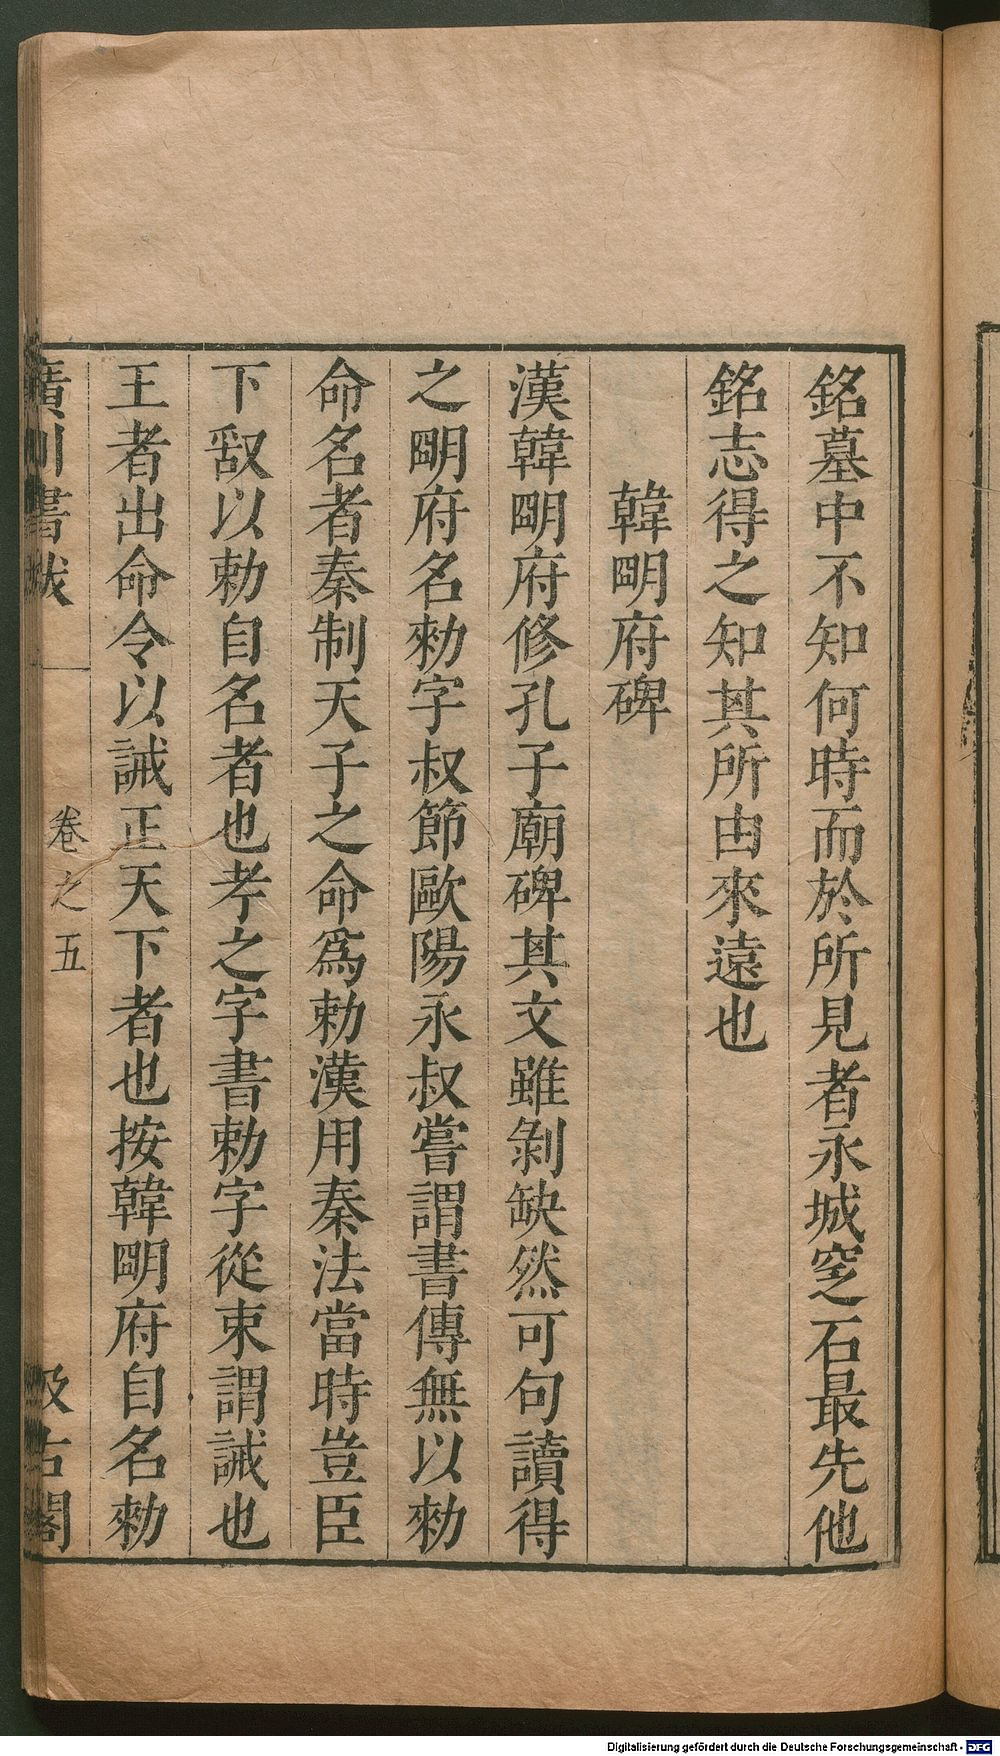 銘墓中不知何時而於所見者永城窆石最先他
銘志得之知其所由來遠也
韓明府碑
漢韓明府修孔子廟碑其文雖剝缺然可句讀得
之明府名勑字叔節歐陽永叔嘗謂書傳無以勑
命名者秦制天子之命爲勅漢用秦法當時豈臣
下敢以勅自名者也孝之字書勅字從束謂誡也
王者出命令以誡正天下者也按韓明府自名勑
廣川書跋
卷之五
汲古閣
Digitalisierung gefördert durch die Deutsche Forschungsgemeinschaft - DFG